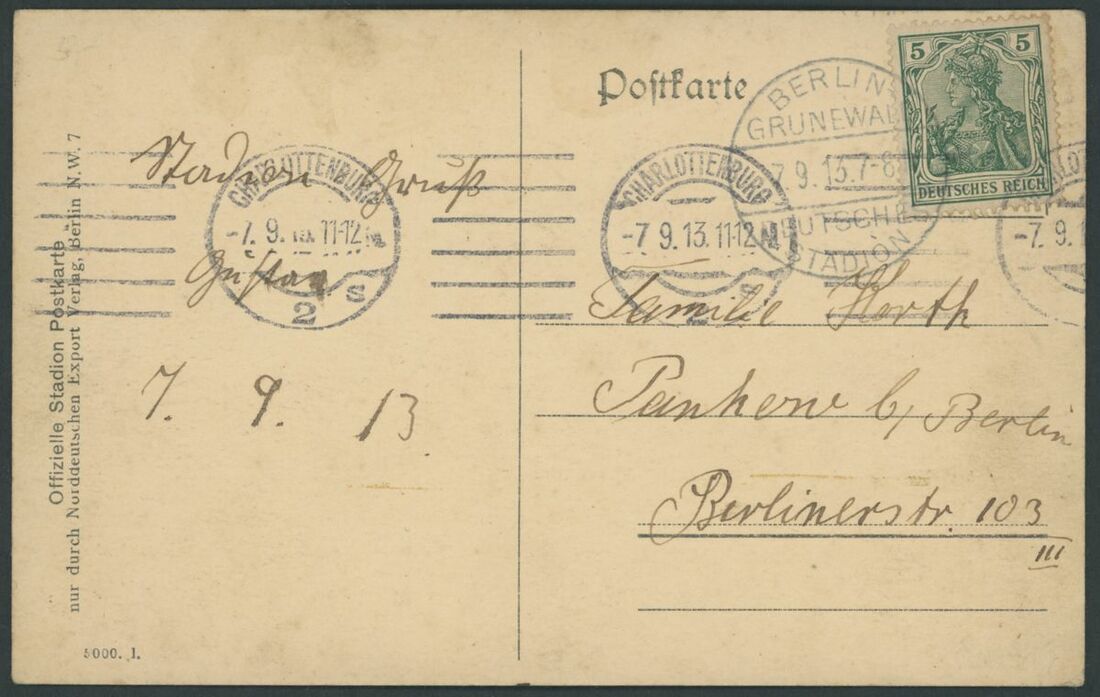 Offizielle Stadion Postkarte
nur durch Norddeutschen Export Verlag, Berlin N.W. 7
5000. 1.
Stadion Gruß
Gustav
7. 9. 13
CHARLOTTENBURG
-7. 9. 13. 11-12 N
2 S
Postkarte
BERLIN
GRUNEWALD
7 9. 13. 7-8
DEUTSCHES
STADION
5 5
DEUTSCHES REICH
CHARLOTTENBURG
-7 9. 13. 11-12 N
S
-7. 9. 1
Familie Horth
Pankow b/ Berlin
Berlinerstr. 103
III